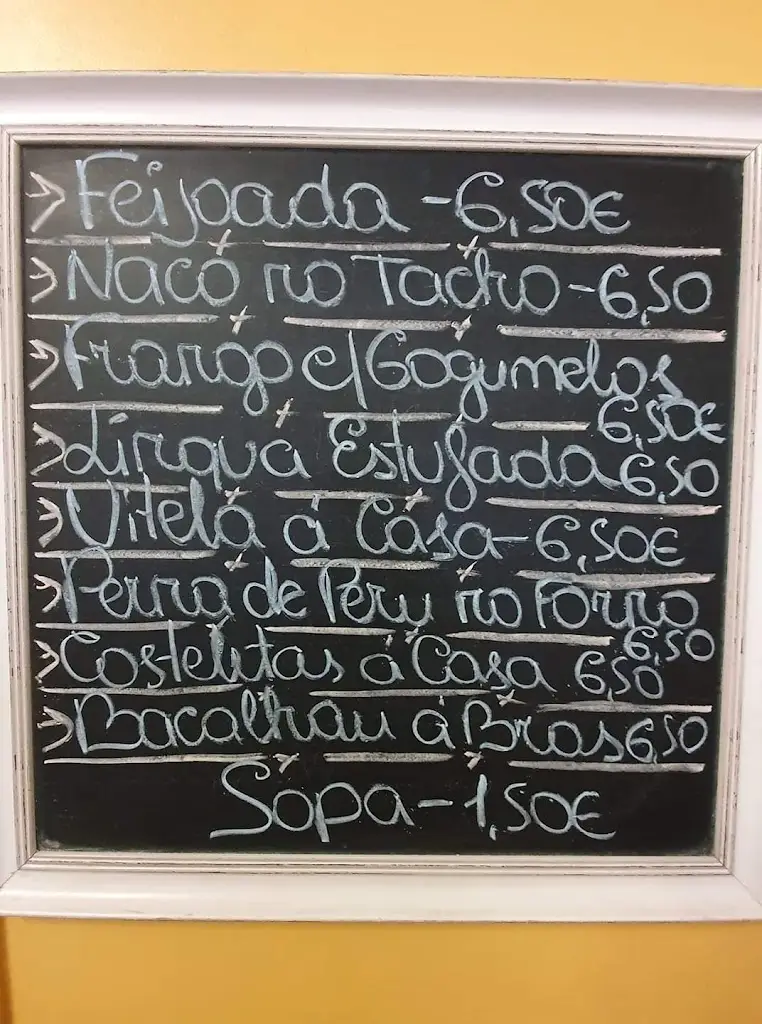 > Feijoada - 6,50€
> Naco no Tacho - 6,50
> Frango c/ Cogumelos
6,50€
> Língua Estufada 6,50
> Vitela á Casa - 6,50€
> Perna de Peru no Forno
6,50
> Costeletas á Casa 6,50
> Bacalhau á Bras 6,50
Sopa - 1,50€